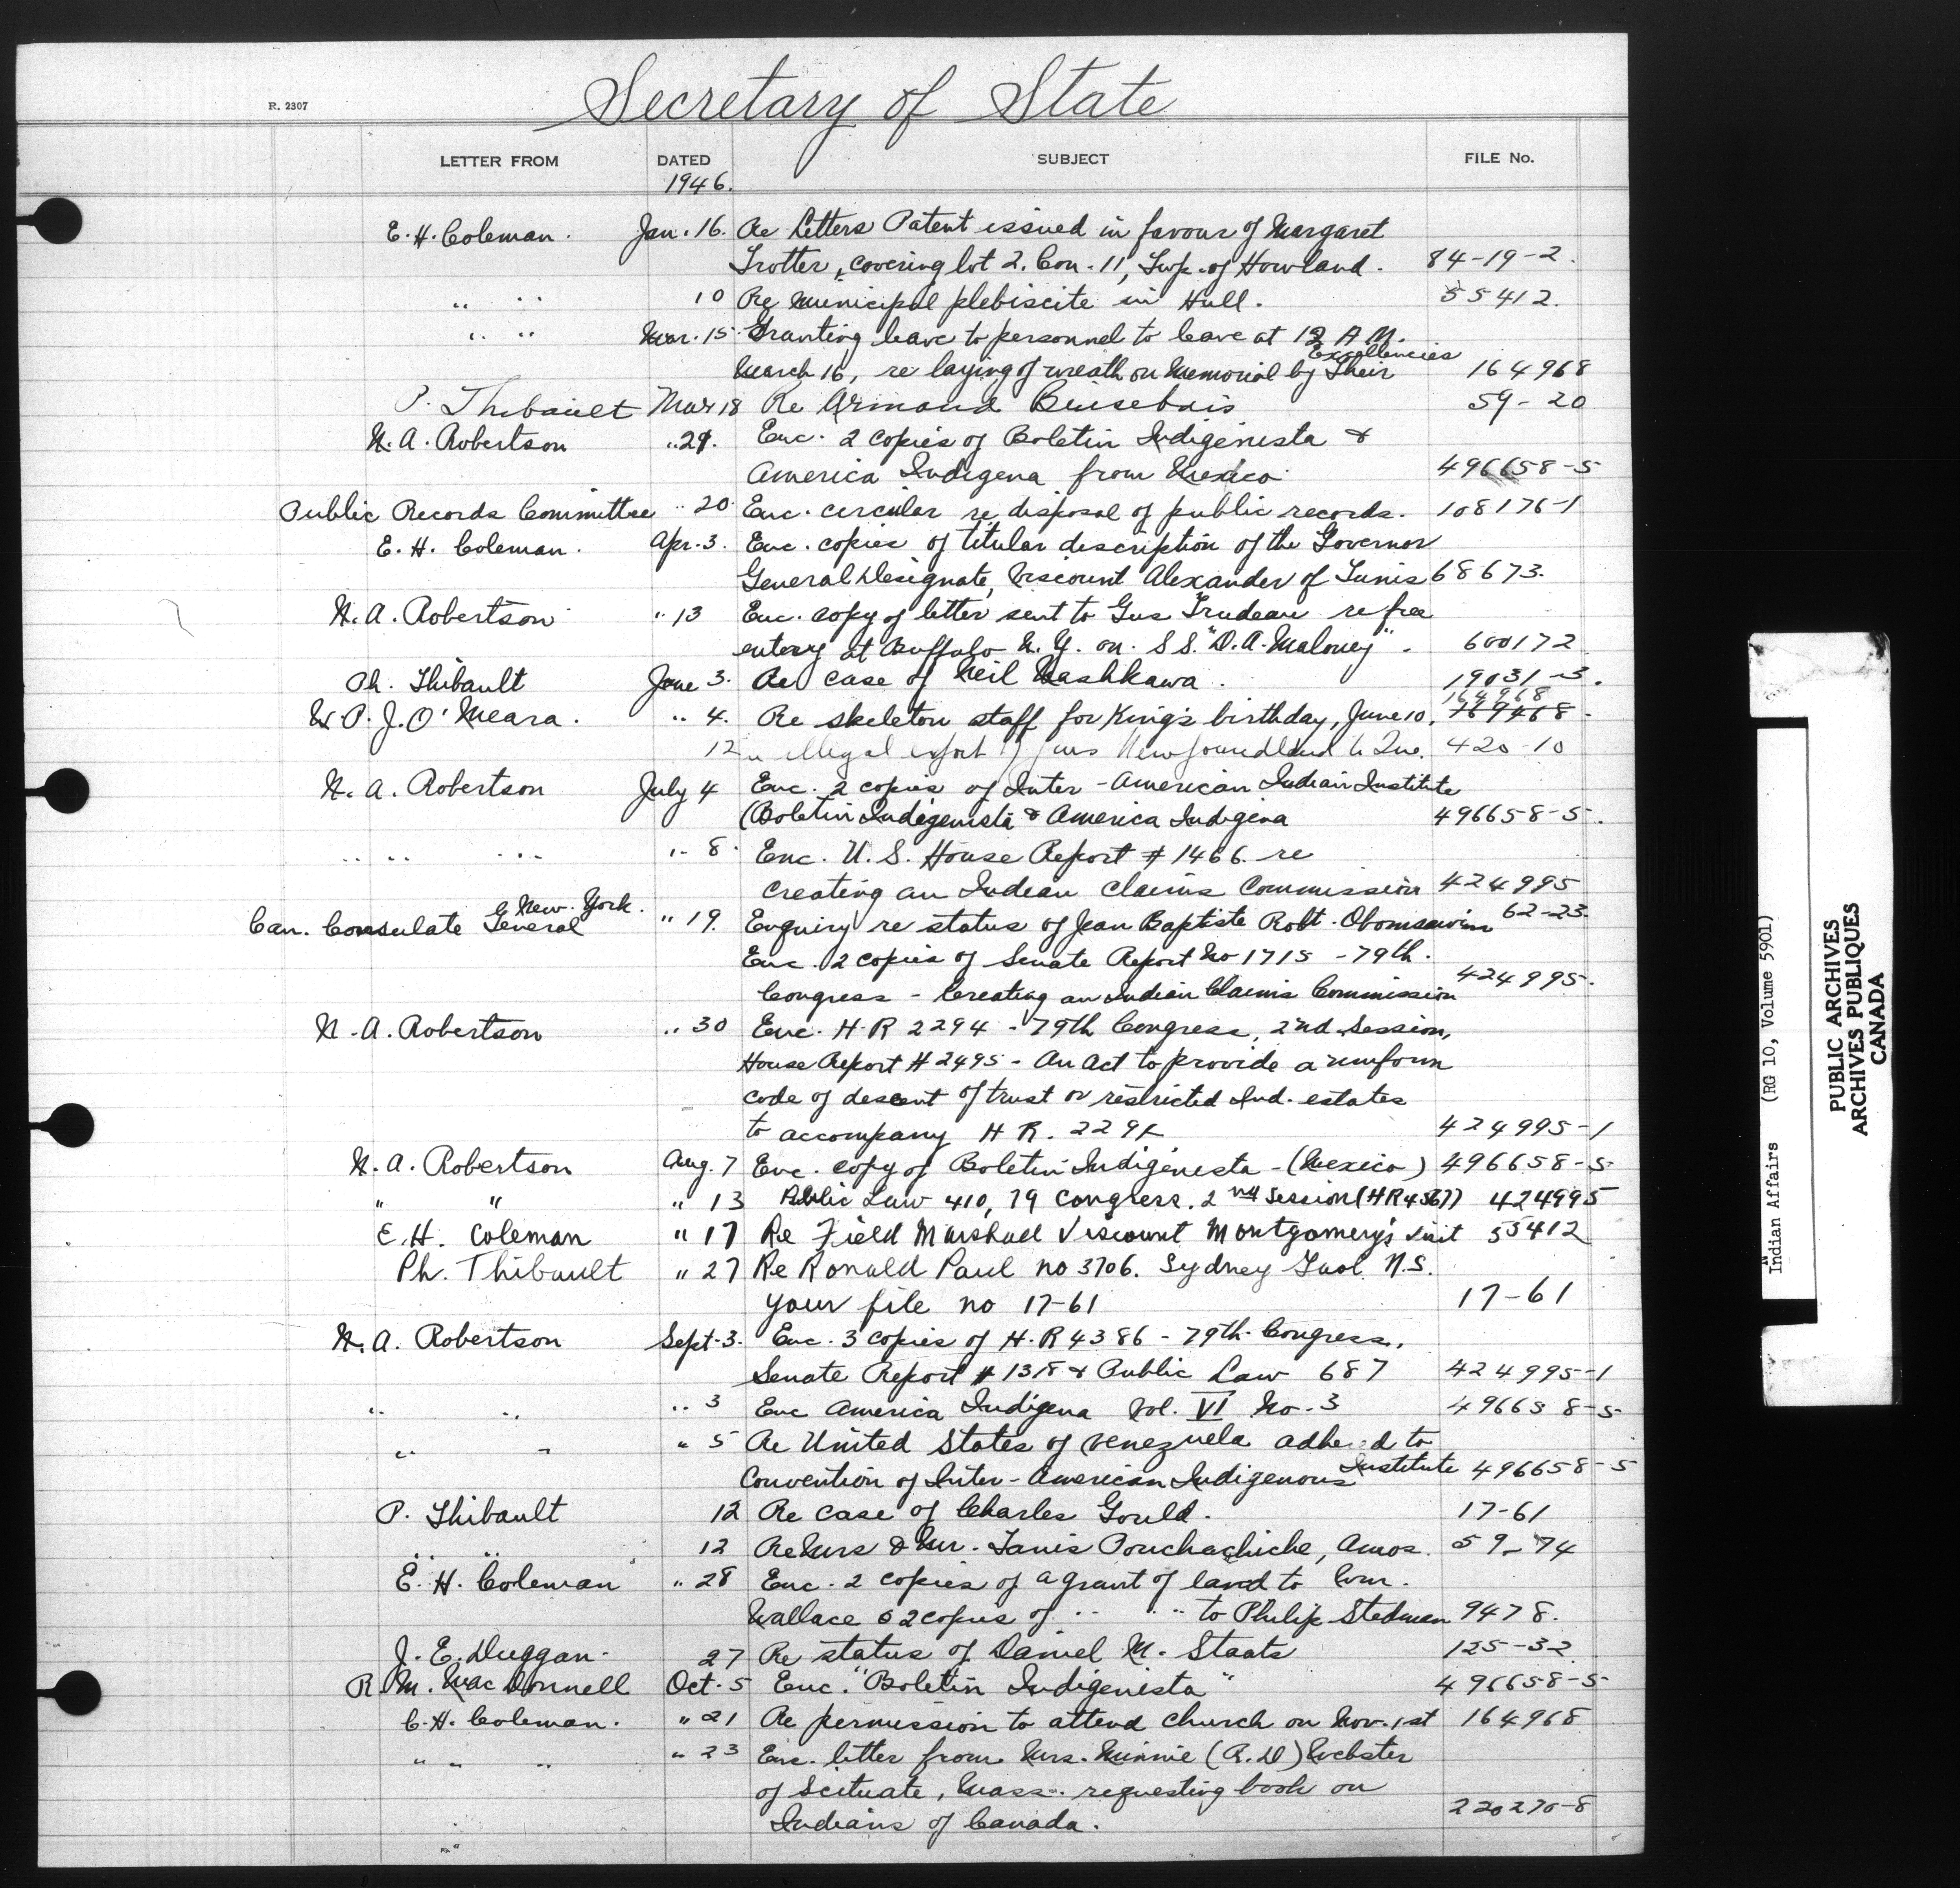 Secretary of State
R. 2307
LETTER FROM DATED SUBJECT FILE No.
1946.
E. H. Coleman. Jan. 16. Re Letters Patent issued in favour of Margaret
Trotter, covering lot 2. Con. 11, Twp. of Howland. 84-19-2.
" " 10 Re Municipal plebiscite in Hull. 55412.
" " Mar. 15. Granting leave to personnel to leave at 12 A M.
March 16, re laying of wreath on Memorial by Their Excellencies 164968
P. Thibault Mar 18 Re Armond 59-20
N. A. Robertson "29. Enc. 2 copies of Boletin Indigenista &
America Indigena from Mexico. 496658-5
Public Records Committee " 20 Enc. circular re disposal of public records. 108176-1
E. H. Coleman. Apr. 3. Enc. copies of titular description of the Governor
General Designate, Viscount Alexander of Tunis 68673.
N. A. Robertson " 13 Enc. copy of letter sent to Gus Trudeau re free
entery at Buffalo N. Y. on. S S. "D. A. Maloney". 600172
Ph. Thibault June 3. Re case of Neil Nashkawa. 19031-3.
W. P. J. O'Meara. " 4. Re skeleton staff for King's birthday, June 10. 164968
12 " illegal export of furs Newfoundland to Que. 420-10
N. A. Robertson July 4 Enc. 2 copies of Inter-American Indian Institute
(Boletin Indigenista & America Indigina 496658-5.
" " " " 8. Enc. U. S. House Report # 1466 re
creating an Indian Claims Commission 424995
Can. Consulate General New York. " 19. Enquiry re status of Jean Baptiste Robt. Obomsawin 62-23.
Enc. 2 copies of Senate Report No 1715 - 79th.
Congress - Creating an Indian Claims Commission 424995.
N. A. Robertson " 30 Enc. H. R 2294 - 79th Congress, 2nd Session,
House Report # 2495 - An Act to provide a uniform
code of descent of trust or restricted Ind. estates
to accompany H R. 2294 424995-1
N. A. Robertson Aug. 7 Enc. copy of Boletin Indigenesta - (Mexico) 496658-5
" " " 13 Public Law 410, 79 Congress. 2nd Session (HR4567) 424995
E. H. Coleman " 17 Re Field Marshall Viscount Montgomery's visit 55412
Ph. Thibault " 27 Re Ronald Paul no 3706. Sydney Gaol N.S.
your file no 17-61 17-61
N. A. Robertson Sept. 3. Enc. 3 copies of H. R 4386 - 79th Congress,
Senate Report # 1318 & Public Law 687 424995-1
" " " 3 Enc America Indigena Vol. VI No. 3 496658-5
" " " 5 Re United States of Venezuela to
Convention of Inter-American Indigenous Institute 496658-5
P. Thibault 12 Re case of Charles Gould. 17-61
" " 12 Re Mrs & Mr. Tanis Pouchachiche, Amos. 59-74
E. H. Coleman " 28 Enc. 2 copies of a grant of land to Wm.
Wallace & 2 copies of " " to Philip Stedman 9478.
J. E. Duggan. 27 Re status of Daniel M. Staats 125-32
R. M. MacDonnell Oct. 5 Enc. "Boletin Indigenista" 496658-5
E. H. Coleman. " 21 Re permission to attend church on Nov. 1st 164968
" " " " 23 Enc. letter from Mrs. Minnie (R. D) Webster
of Scituate, Mass. requesting book on
Indians of Canada. 220270-8
Indian Affairs (RG 10, Volume 5901)
PUBLIC ARCHIVES
ARCHIVES PUBLIQUES
CANADA